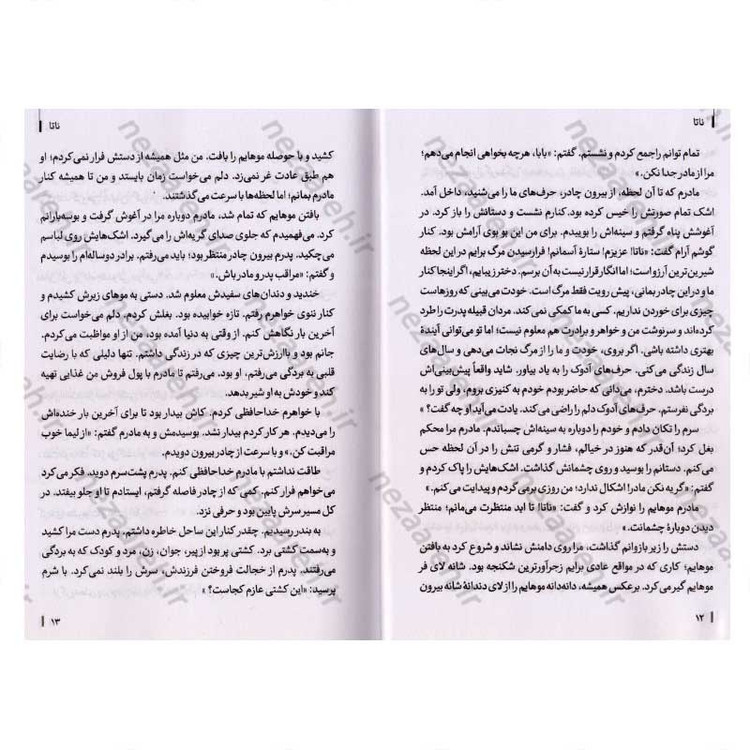 ناتا
تمام توانم را جمع کردم و نشستم. گفتم: «بابا، هرچه بخواهی انجام می‌دهم؛
مرا از مادر جدا نکن.»
مادرم که تا آن لحظه، از بیرون چادر، حرف‌های ما را می‌شنید، داخل آمد.
اشک تمام صورتش را خیس کرده بود. کنارم نشست و دستانش را باز کرد. در
آغوشش پناه گرفتم و سینه‌اش را بوییدم. برای من این بو بوی آرامش بود. کنار
گوشم آرام گفت: «ناتا! عزیزم! ستارهٔ آسمانم! فرارسیدن مرگ برایم در این لحظه
شیرین‌ترین آرزو است؛ اما انگار قرار نیست به آن برسم. دختر زیبایم، اگر اینجا کنار
ما و در این چادر بمانی، پیش رویت فقط مرگ است. خودت می‌بینی که روزهاست
چیزی برای خوردن نداریم. کسی به ما کمکی نمی‌کند. مردان قبیله پدرت را طرد
کرده‌اند و سرنوشت من و خواهر و برادرت هم معلوم نیست؛ اما تو می‌توانی آیندهٔ
بهتری داشته باشی. اگر بروی، خودت و ما را از مرگ نجات می‌دهی و سال‌های
سال زندگی می‌کنی. حرف‌های آدوک را به یاد بیاور. شاید واقعاً پیش‌بینی‌اش
درست باشد. دخترم، می‌دانی که حاضر بودم خودم به کنیزی بروم، ولی تو را به
بردگی نفرستم. حرف‌های آدوک دلم را راضی می‌کند. یادت می‌آید او چه گفت؟»
سرم را تکان دادم و خودم را دوباره به سینه‌اش چسباندم. مادرم مرا محکم
بغل کرد؛ آن‌قدر که هنوز در خیالم، فشار و گرمی تنش را در آن لحظه حس
می‌کنم. دستانم را بوسید و روی چشمانش گذاشت. اشک‌هایش را پاک کردم و
گفتم: «گریه نکن مادر! اشکال ندارد؛ من روزی برمی‌گردم و پیدایت می‌کنم.»
مادرم موهایم را نوازش کرد و گفت: «ناتا! تا ابد منتظرت می‌مانم؛ منتظر
دیدن دوبارهٔ چشمانت.»
دستش را زیر بازوانم گذاشت، مرا روی دامنش نشاند و شروع کرد به بافتن
موهایم؛ کاری که در مواقع عادی برایم زجرآورترین شکنجه بود. شانه لای فر
موهایم گیر می‌کرد. برعکس همیشه، دانه‌دانه موهایم را از لای دندانهٔ شانه بیرون
۱۲
ناتا
کشید و با حوصله موهایم را بافت. من مثل همیشه از دستش فرار نمی‌کردم؛ او
هم طبق عادت غر نمی‌زد. دلم می‌خواست زمان بایستد و من تا همیشه کنار
مادرم بمانم؛ اما لحظه‌ها با سرعت می‌گذشتند.
بافتن موهایم که تمام شد، مادرم دوباره مرا در آغوش گرفت و بوسه‌بارانم
کرد. می‌فهمیدم که جلوی صدای گریه‌اش را می‌گیرد. اشک‌هایش روی لباسم
می‌چکید. پدرم بیرون چادر منتظر بود؛ باید می‌رفتم. برادر دوساله‌ام را بوسیدم
و گفتم: «مراقب پدر و مادر باش.»
خندید و دندان‌های سفیدش معلوم شد. دستی به موهای زبرش کشیدم و
کنار ننوی خواهرم رفتم. تازه خوابیده بود. بغلش کردم، دلم می‌خواست برای
آخرین بار نگاهش کنم. از وقتی به دنیا آمده بود، من از او مواظبت می‌کردم.
جانم بود و باارزش‌ترین چیزی که در زندگی داشتم. تنها دلیلی که با رضایت
قلبی به بردگی می‌رفتم، او بود. می‌رفتم تا مادرم با پول فروش من غذایی تهیه
کند و خودم به او شیر بدهد.
با خواهرم خداحافظی کردم. کاش بیدار بود تا برای آخرین بار خنده‌اش
را می‌دیدم. هر کار کردم بیدار نشد. بوسیدمش و به مادرم گفتم: «از لیما خوب
مراقبت کن.» و با سرعت از چادر بیرون دویدم.
طاقت نداشتم با مادرم خداحافظی کنم. پدرم پشت‌سرم دوید. فکر می‌کرد
می‌خواهم فرار کنم. کمی که از چادر فاصله گرفتم، ایستادم تا او جلو بیفتد. در
کل مسیر سرش پایین بود و حرفی نزد.
به بندر رسیدیم. چقدر کنار این ساحل خاطره داشتم. پدرم دست مرا کشید
و به‌سمت کشتی برد. کشتی پر بود از پیر، جوان، زن، مرد و کودک که به بردگی
می‌رفتند. پدرم از خجالت فروختن فرزندش، سرش را بلند نمی‌کرد. با شرم
پرسید: «این کشتی عازم کجاست؟»
۱۳
nezaareh.ir